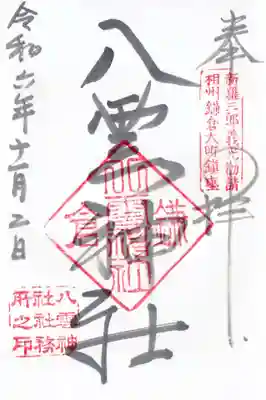 奉拝
新羅三郎義光勧請
相州鎌倉大町鎮座
八雲神社
鎌倉
八雲神社
令和六年十一月二日
八雲神
社社務
所之印